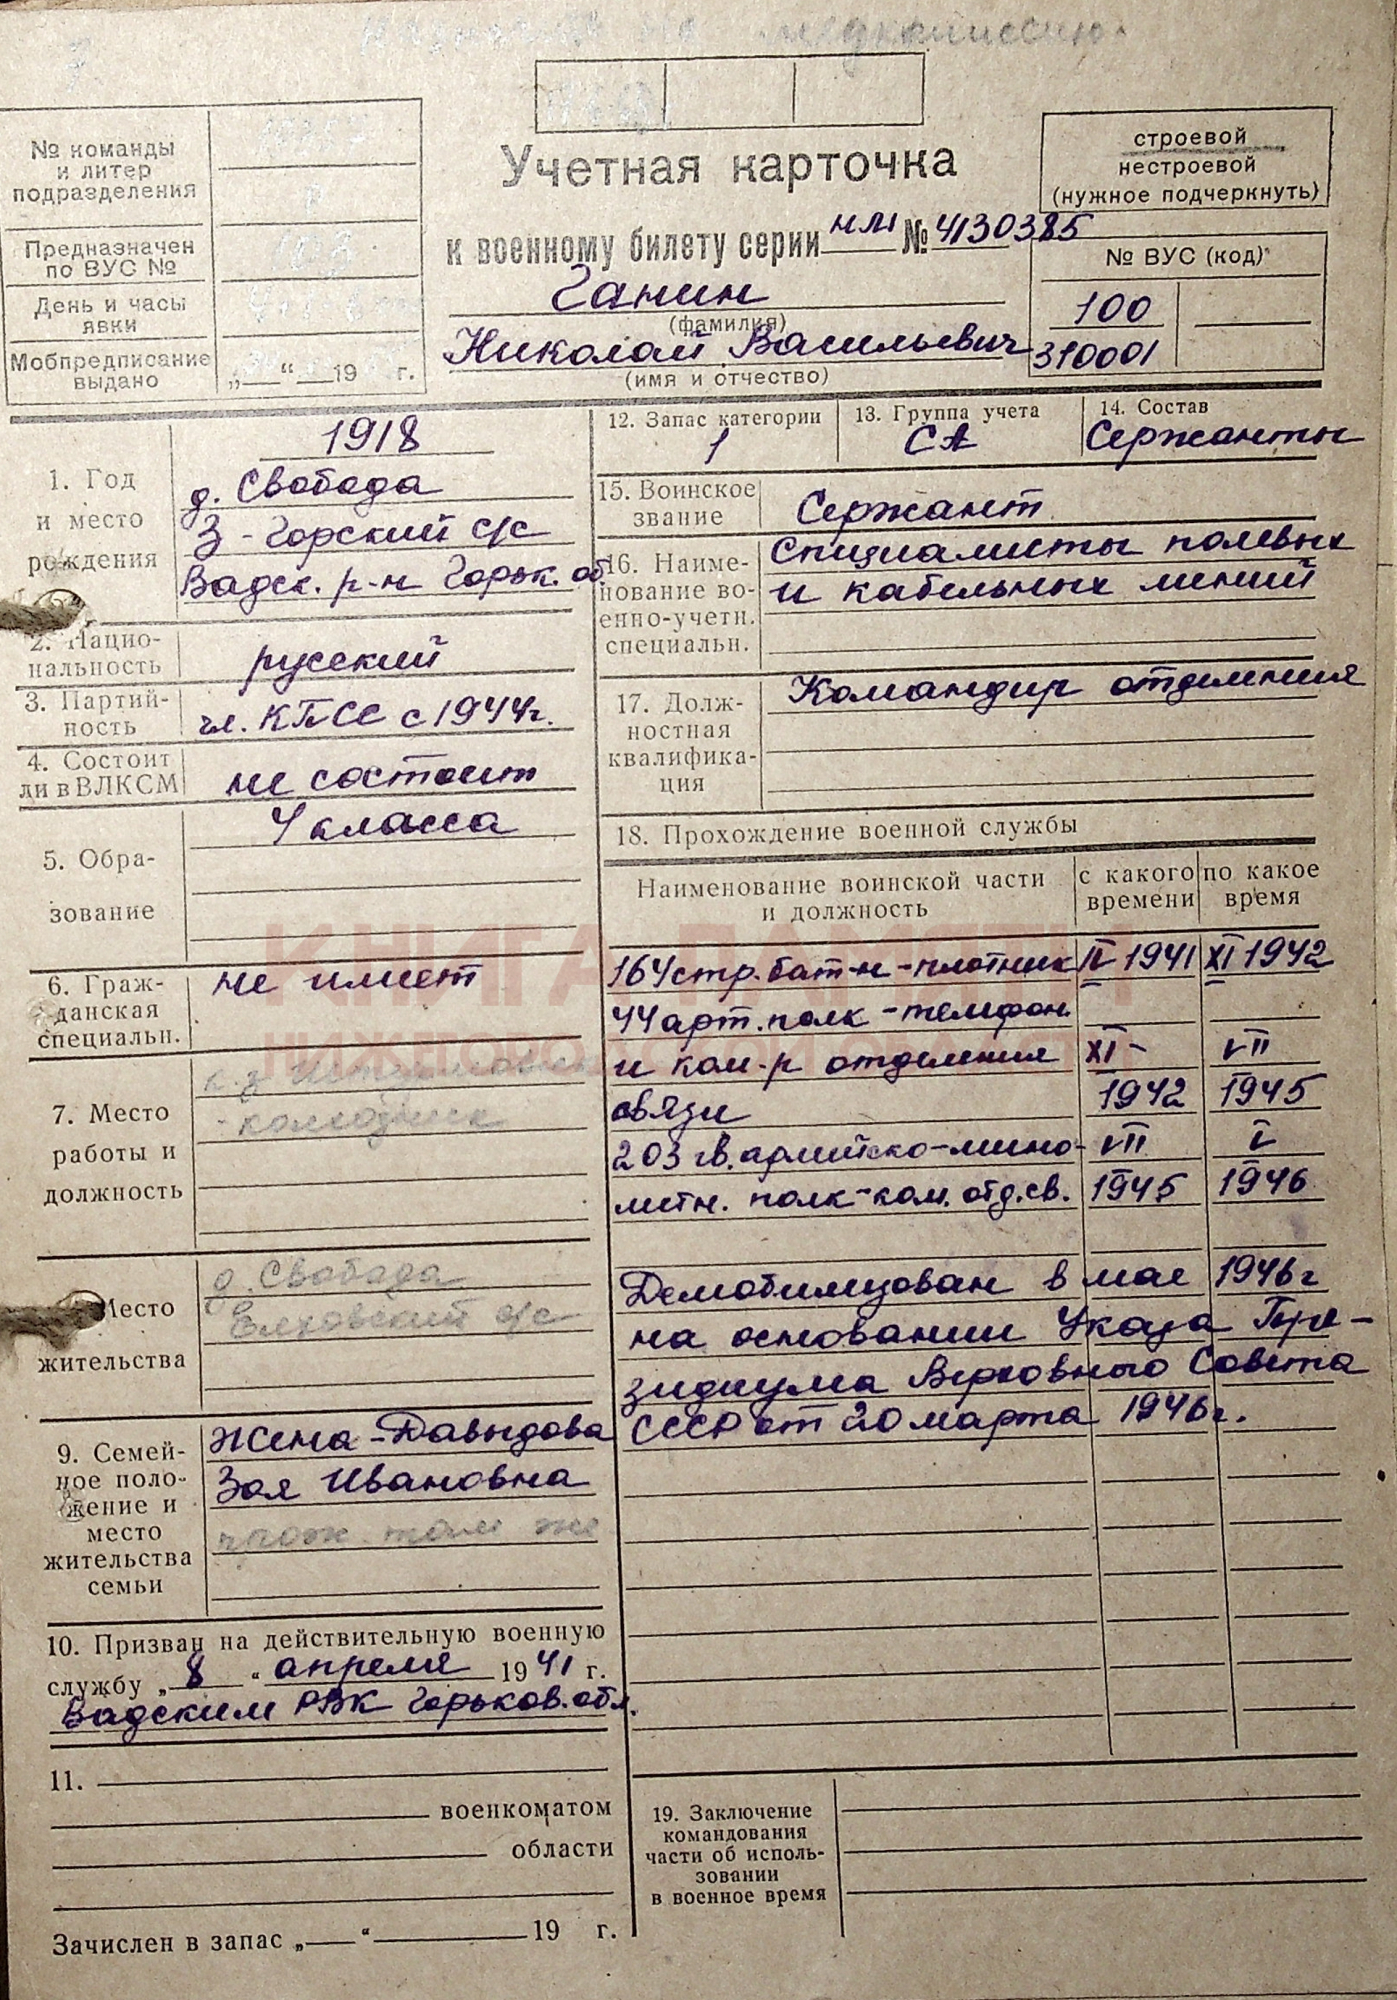 на медкомиссию.
№ команды
и литер
подразделения
Предназначен
по ВУС №
День и часы
явки
Мобпредписание
выдано
„ “ 19 г.
Учетная карточка
к военному билету серии НЛ № 4130385
Ганин
(фамилия)
Николай Васильевич
(имя и отчество)
строевой
нестроевой
(нужное подчеркнуть)
№ ВУС (код)
100
310001
1. Год
и место
рождения
1918
д. Свобода
З-Горский с/с
Вадск. р-н Горьк. об.
2. Нацио-
нальность
русский
3. Партий-
ность
чл. КПСС с 1944г.
4. Состоит
ли в ВЛКСМ
не состоит
5. Обра-
зование
4 класса
6. Граж-
данская
специальн.
не имеет
7. Место
работы и
должность
- колхозник
Место
жительства
д. Свобода
Елховский с/с
9. Семей-
ное поло-
жение и
место
жительства
семьи
Жена - Давыдова
Зоя Ивановна
прож. там же
10. Призван на действительную военную
службу „ 8 “ апреля 1941 г.
Вадским РВК Горьков. обл.
11.
военкоматом
области
Зачислен в запас „ “ 19 г.
12. Запас категории
1
13. Группа учета
СА
14. Состав
Сержанты
15. Воинское
звание
Сержант
16. Наиме-
нование во-
енно-учетн.
специальн.
Специалисты полевых
и кабельных линий
17. Долж-
ностная
квалифика-
ция
Командир отделения
18. Прохождение военной службы
Наименование воинской части
и должность
с какого
времени
по какое
время
164 стр. бат-н - плотник IV 1941 XI 1942
44 арт. полк - телефон.
и ком-р отделения XI- VII
связи 1942 1945
203 гв. армейско-мино- VII V
метн. полк - ком. отд. св. 1945 1946
Демобилизован в мае 1946г
на основании Указа Пре-
зидиума Верховного Совета
СССР от 20 марта 1946г.
19. Заключение
командования
части об исполь-
зовании
в военное время
КНИГА ПАМЯТИ
НИЖЕГОРОДСКОЙ ОБЛАСТИ